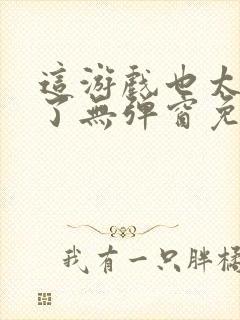 這游戲也太
了無彈窗免
我有一只胖橘